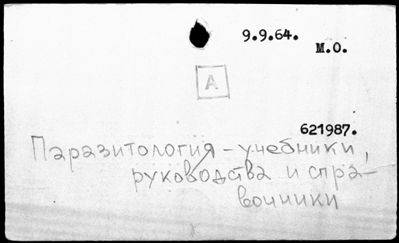 9.9.64.
М.О.
А
621987.
Паразитология – учебники,
руководства и спра-
вочники